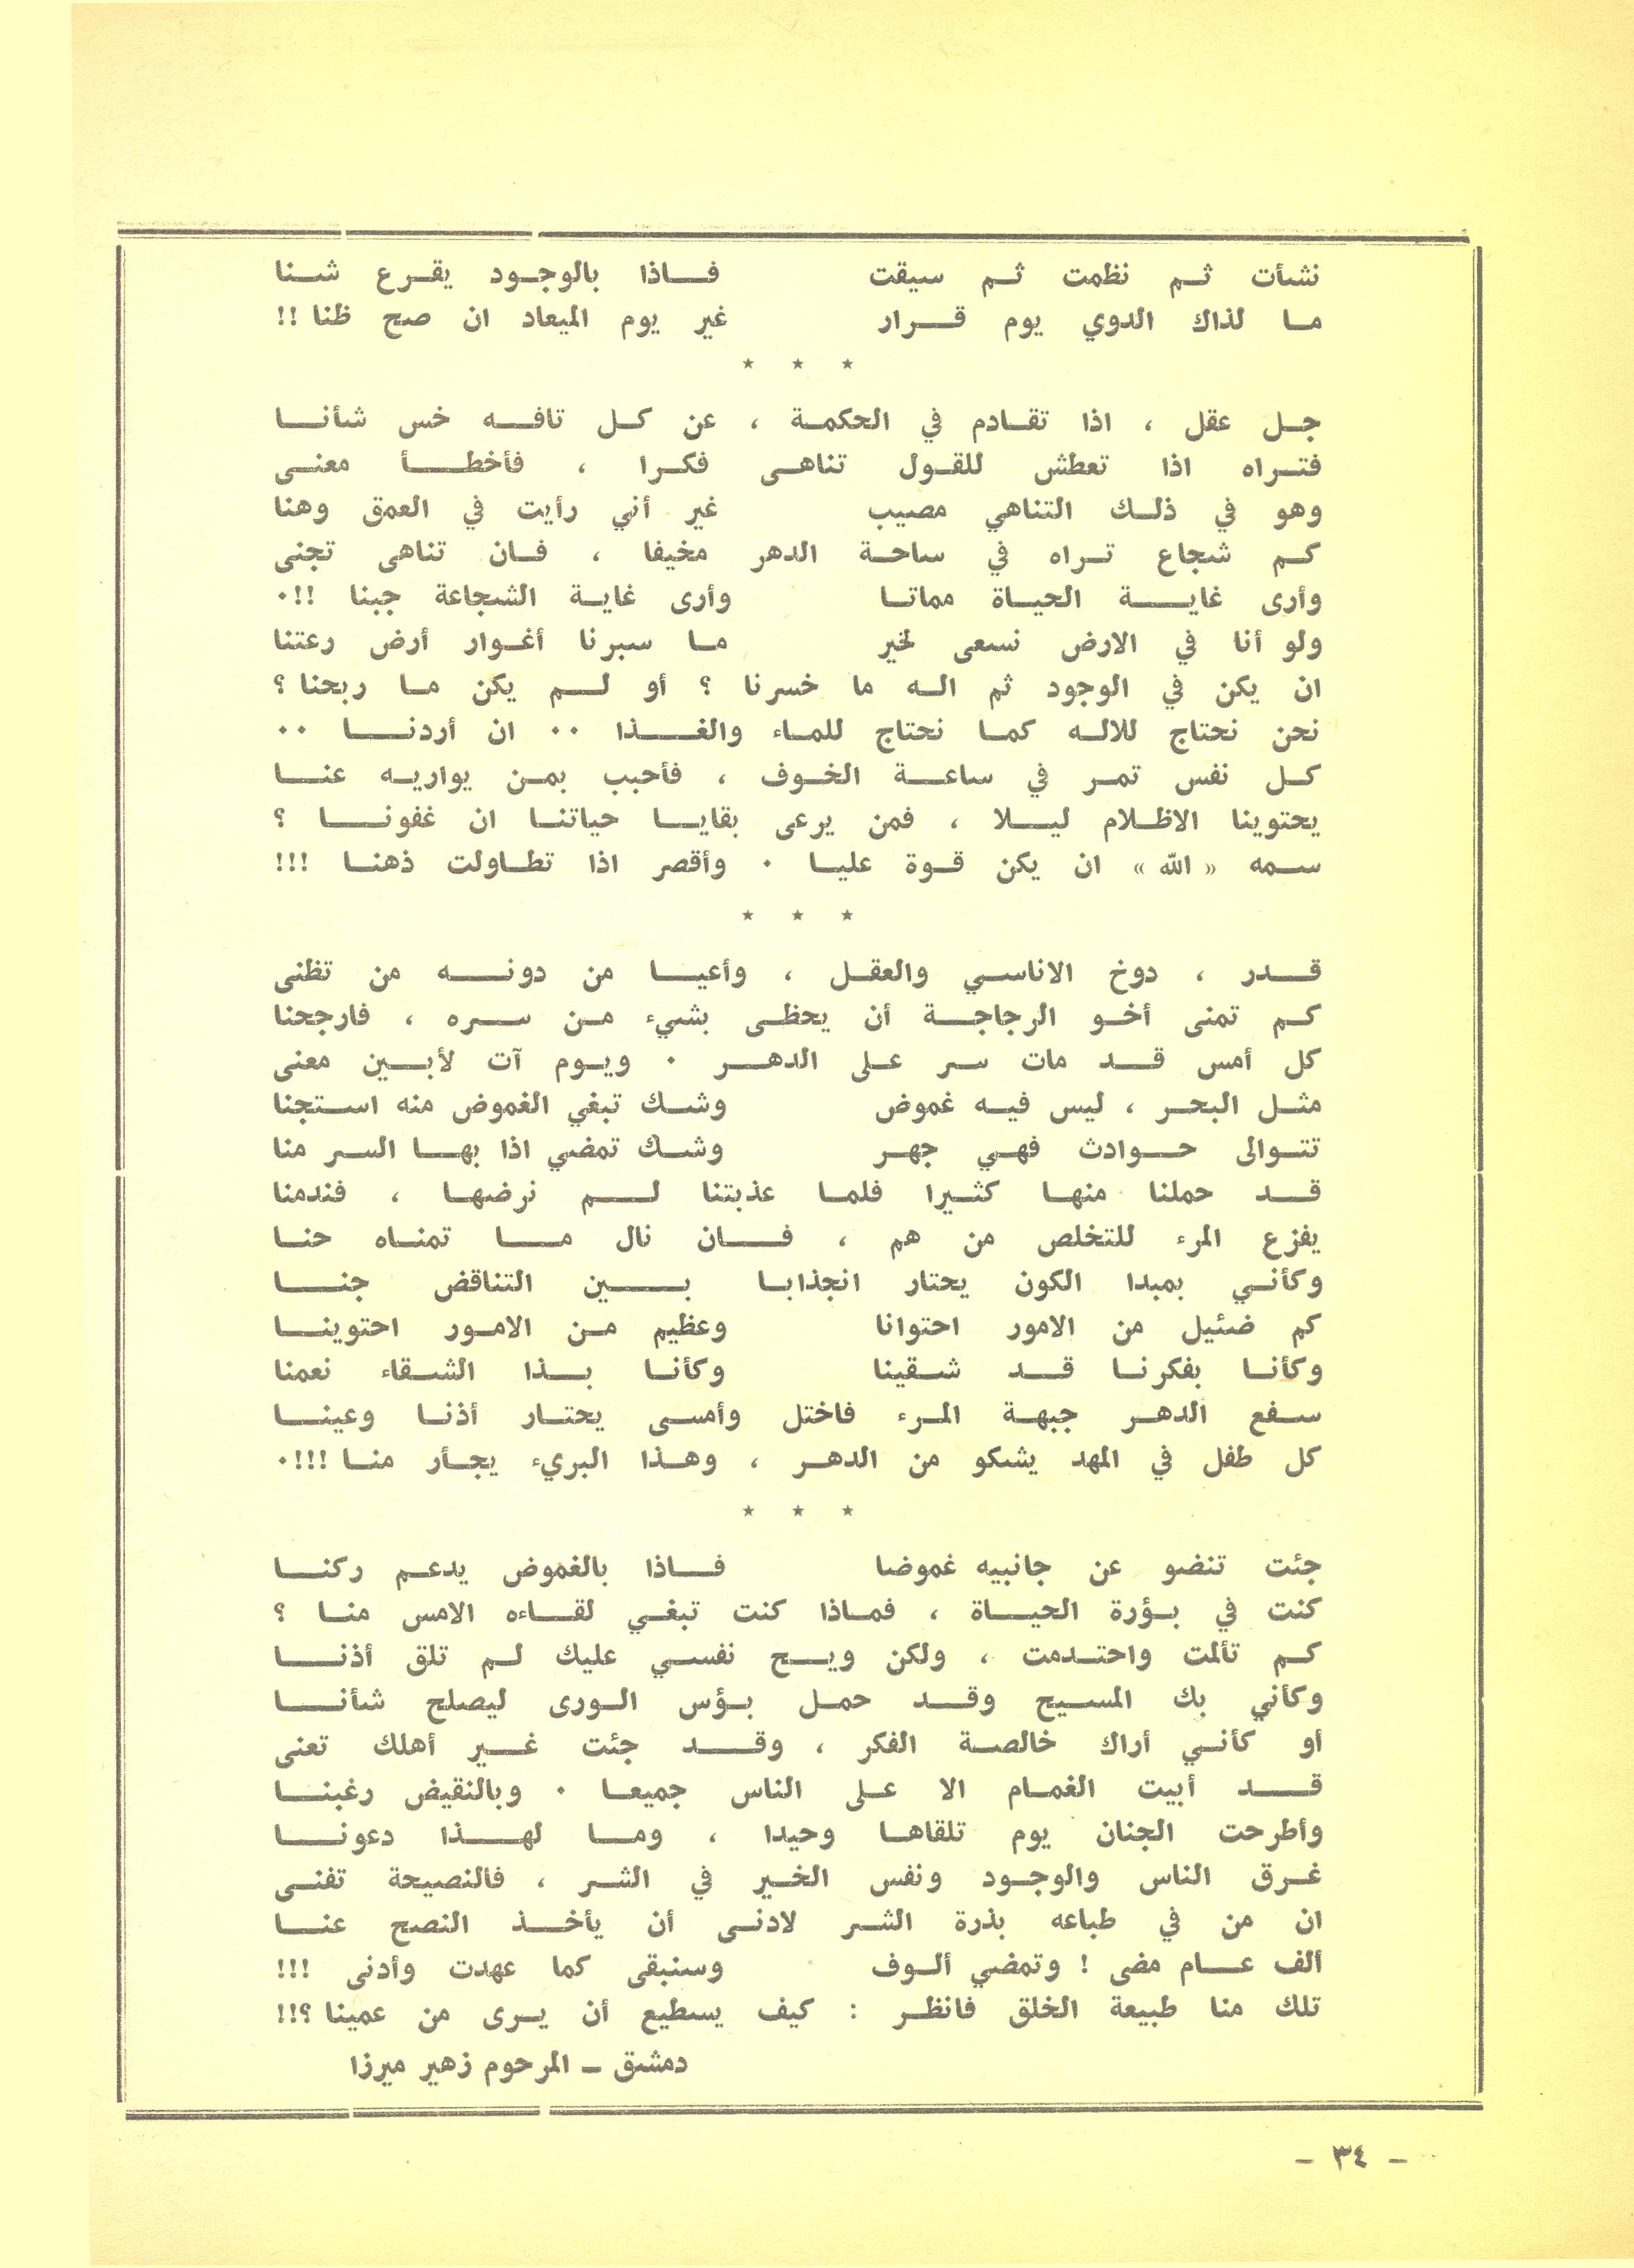 نشأت ثم نظمت ثم سيقت فاذا بالوجود يقرع شنا
ما لذاك الدوي يوم قرار غير يوم الميعاد ان صح ظنا !!
* * *
جل عقل ، اذا تقادم في الحكمة ، عن كل تافه خس شأنا
فتراه اذا تعطش للقول تناهى فكرا ، فأخطأ معنى
وهو في ذلك التناهي مصيب غير أني رأيت في العمق وهنا
كم شجاع تراه في ساحة الدهر مخيفا ، فان تناهى تجنى
وأرى غاية الحياة مماتا وأرى غاية الشجاعة جبنا !!.
ولو أنا في الارض نسعى لخير ما سبرنا أغوار أرض رعتنا
ان يكن في الوجود ثم اله ما خسرنا ؟ أو لم يكن ما ربحنا ؟
نحن نحتاج للاله كما نحتاج للماء والغذا .. ان أردنا ..
كل نفس تمر في ساعة الخوف ، فأحبب بمن يواريه عنا
يحتوينا الاظلام ليلا ، فمن يرعى بقايا حياتنا ان غفونا ؟
سمه « الله » ان يكن قوة عليا . وأقصر اذا تطاولت ذهنا !!!
* * *
قدر ، دوخ الاناسي والعقل ، وأعيا من دونه من تظنى
كم تمنى أخو الرجاجة أن يحظى بشيء من سره ، فارجحنا
كل أمس قد مات سر على الدهر . ويوم آت لأبين معنى
مثل البحر ، ليس فيه غموض وشك تبغي الغموض منه استجنا
تتوالى حوادث فهي جهر وشك تمضي اذا بها السر منا
قد حملنا منها كثيرا فلما عذبتنا لم نرضها ، فندمنا
يفزع المرء للتخلص من هم ، فان نال ما تمناه حنا
وكأني بمبدا الكون يحتار انجذابا بين التناقض جنا
كم ضئيل من الامور احتوانا وعظيم من الامور احتوينا
وكأنا بفكرنا قد شقينا وكأنا بذا الشقاء نعمنا
سفع الدهر جبهة المرء فاختل وأمسى يحتار أذنا وعينا
كل طفل في المهد يشكو من الدهر ، وهذا البريء يجأر منا !!!.
* * *
جئت تنضو عن جانبيه غموضا فاذا بالغموض يدعم ركنا
كنت في بؤرة الحياة ، فماذا كنت تبغي لقاءه الامس منا ؟
كم تألمت واحتدمت ، ولكن ويح نفسي عليك لم تلق أذنا
وكأني بك المسيح وقد حمل بؤس الورى ليصلح شأنا
أو كأني أراك خالصة الفكر ، وقد جئت غير أهلك تعنى
قد أبيت الغمام الا على الناس جميعا . وبالنقيض رغبنا
وأطرحت الجنان يوم تلقاها وحيدا ، وما لهذا دعونا
غرق الناس والوجود ونفس الخير في الشر ، فالنصيحة تفنى
ان من في طباعه بذرة الشر لادنى أن يأخذ النصح عنا
ألف عام مضى ! وتمضي ألوف وسنبقى كما عهدت وأدنى !!!
تلك منا طبيعة الخلق فانظر : كيف يسطيع أن يرى من عمينا ؟!!
دمشق – المرحوم زهير ميرزا
– ٣٤ –